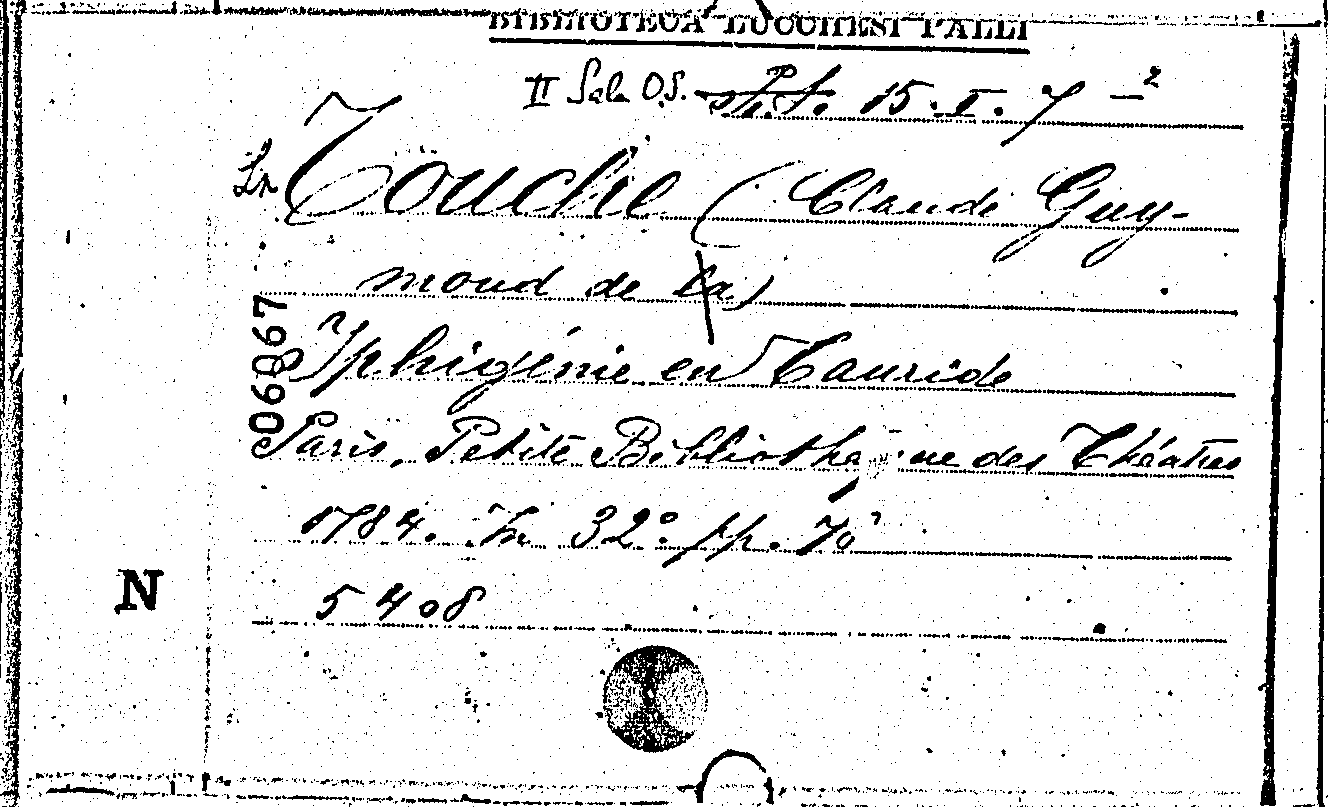 BIBLIOTECA LUCCHESI PALLI
II Sala O.S. 15. I. 7 – 2
La Touche (Claude Guy-
mond de la)
Iphigénie en Tauride
Paris, Petite Bibliothèque des Théatres
1784. In 32° pp. 70
5408
N
06067